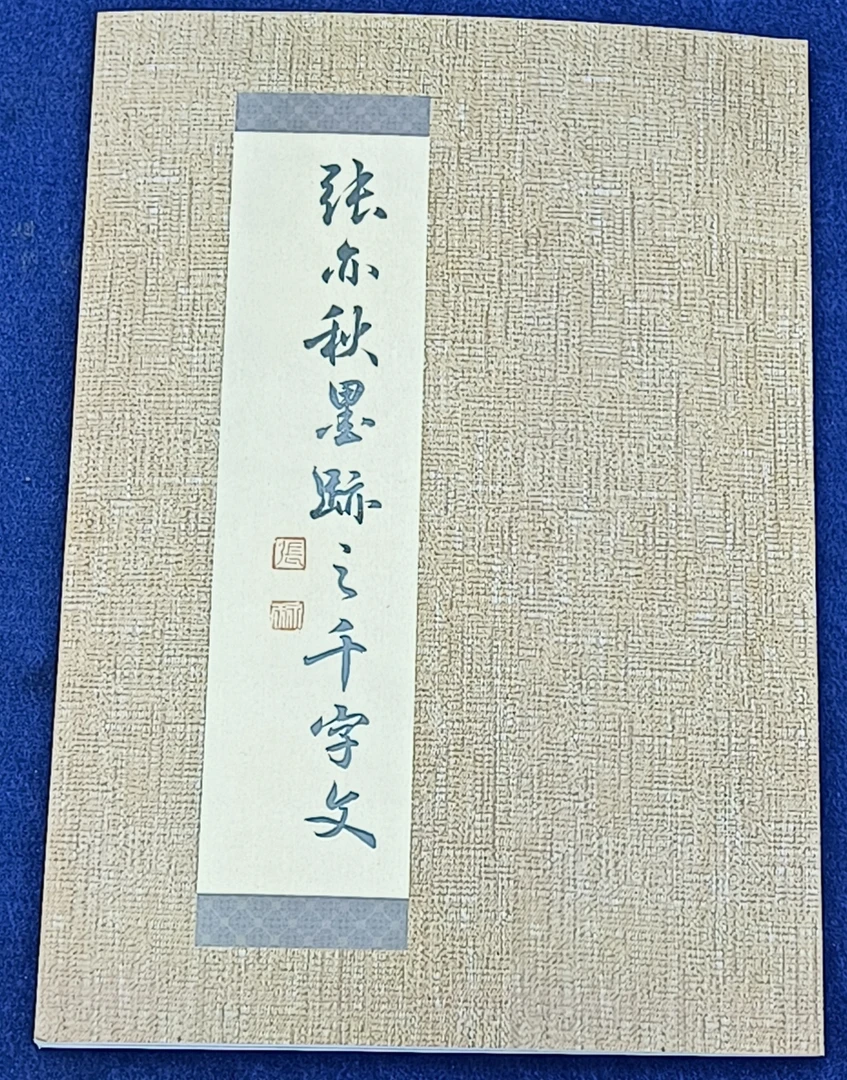 张亦秋墨跡之千字文
張